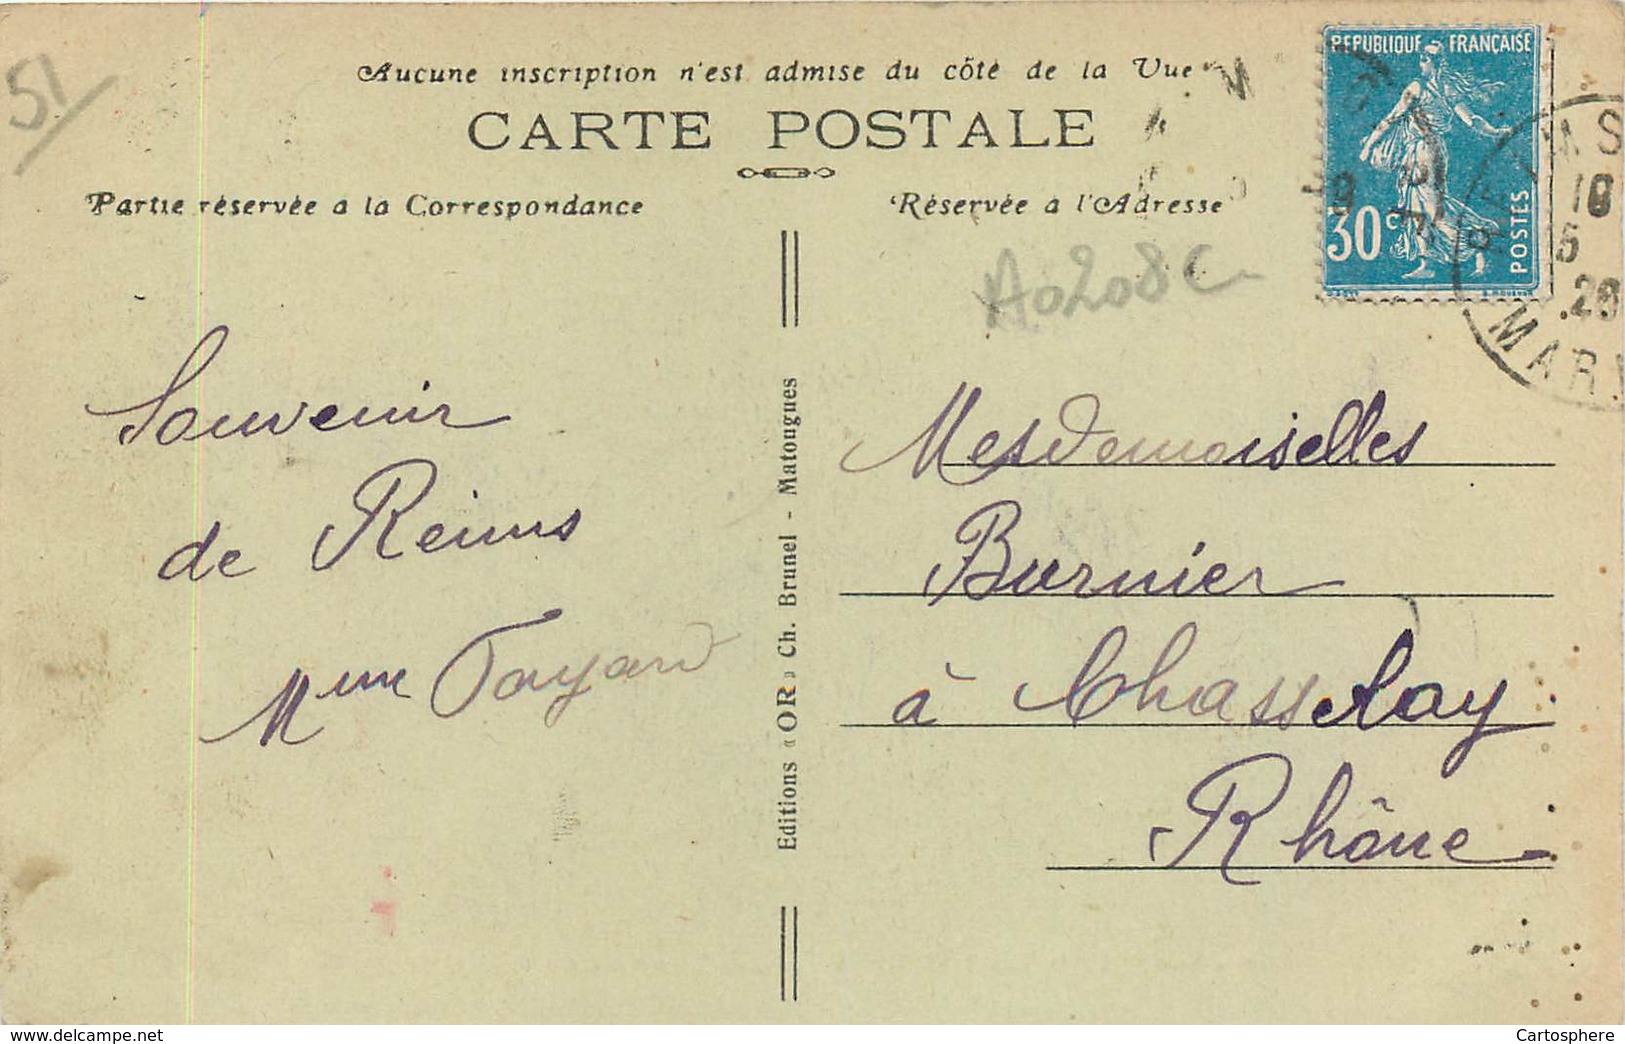 51
Aucune inscription n'est admise du côté de la Vue
CARTE POSTALE
Partie réservée a la Correspondance
Réservée a l'Adresse
REPUBLIQUE FRANÇAISE
30c
POSTES
MARNE
A0208C
Souvenir
de Reims
Mme Fayard
Editions « OR » Ch. Brunel - Matougues
Mesdemoiselles
Burnier
à Chasselay
Rhône
www.delcampe.net
Cartosphere